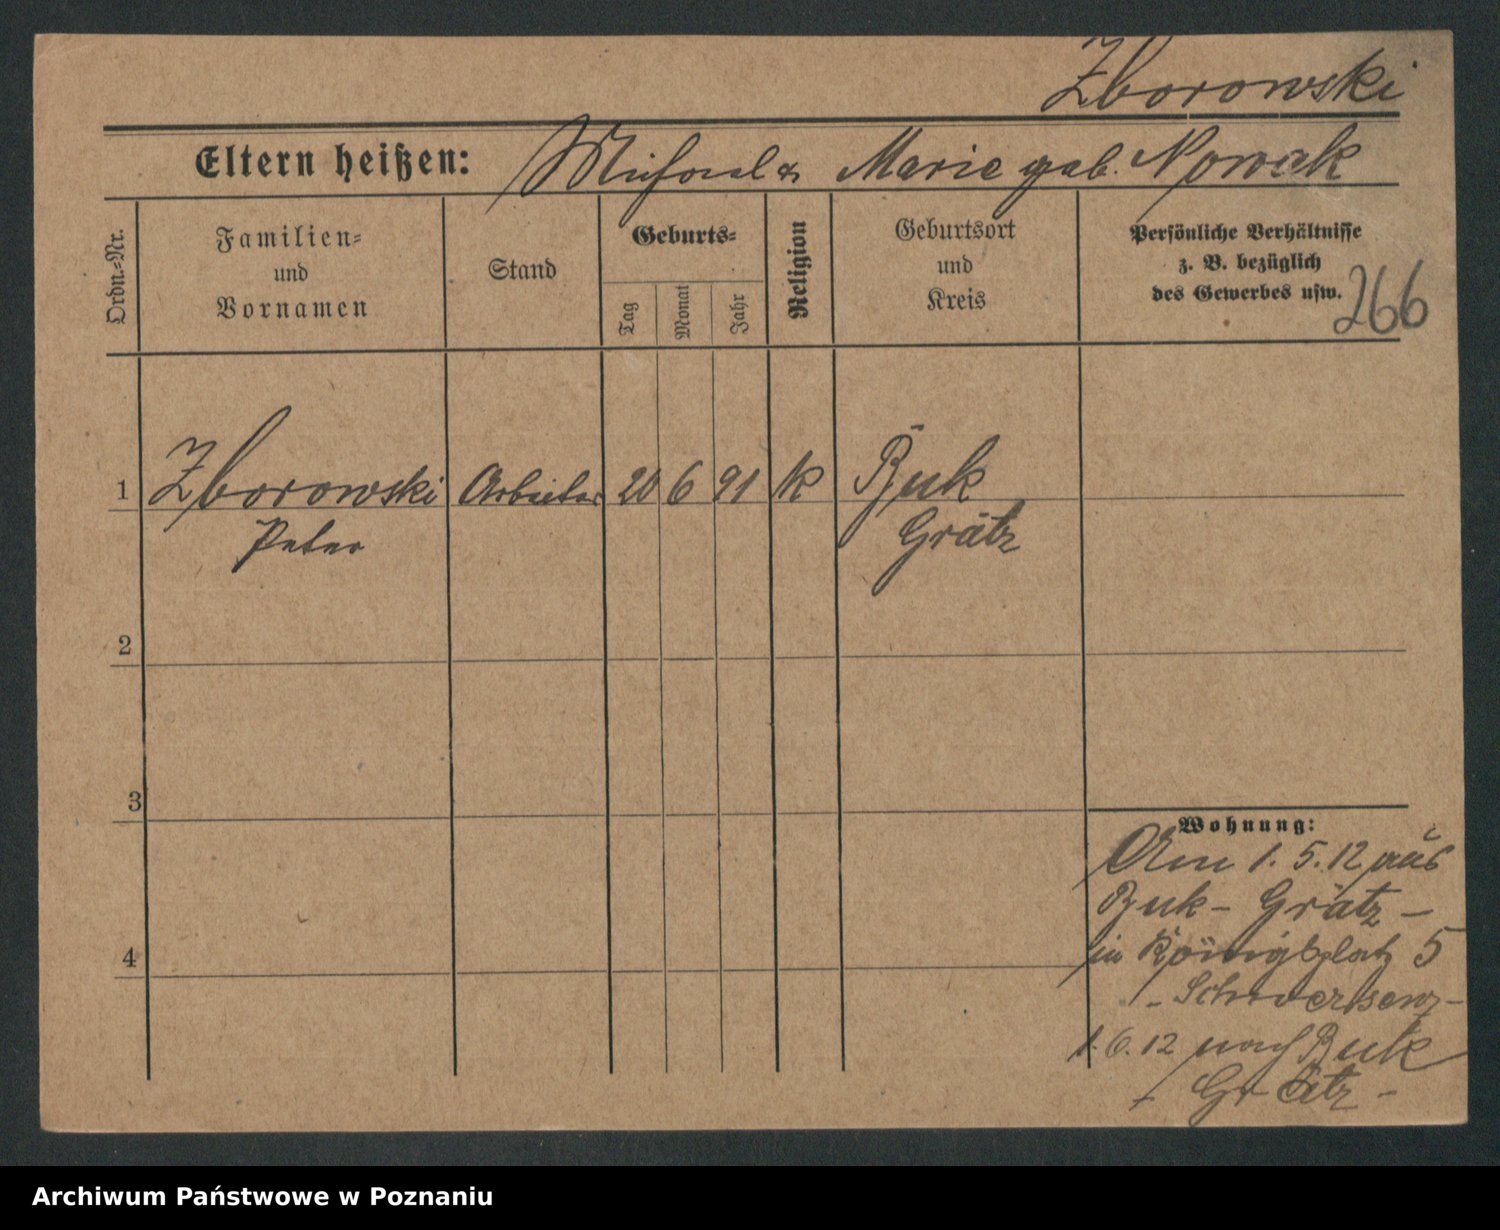 Zborowski
Eltern heißen: Michael & Marie geb. Nowak
Ordn.=Nr.
Familien=
und
Vornamen
Stand
Geburts=
Tag
Monat
Jahr
Religion
Geburtsort
und
Kreis
Persönliche Verhältnisse
z. B. bezüglich
des Gewerbes usw.
266
1 Zborowski Arbeiter 20 6 91 k Buk
Peter Grätz
2
3
4
Wohnung:
Am 1. 5. 12 aus
Buk - Grätz -
in Königsplatz 5
- Schwersenz -
1. 6. 12 nach Buk
Grätz -
Archiwum Państwowe w Poznaniu